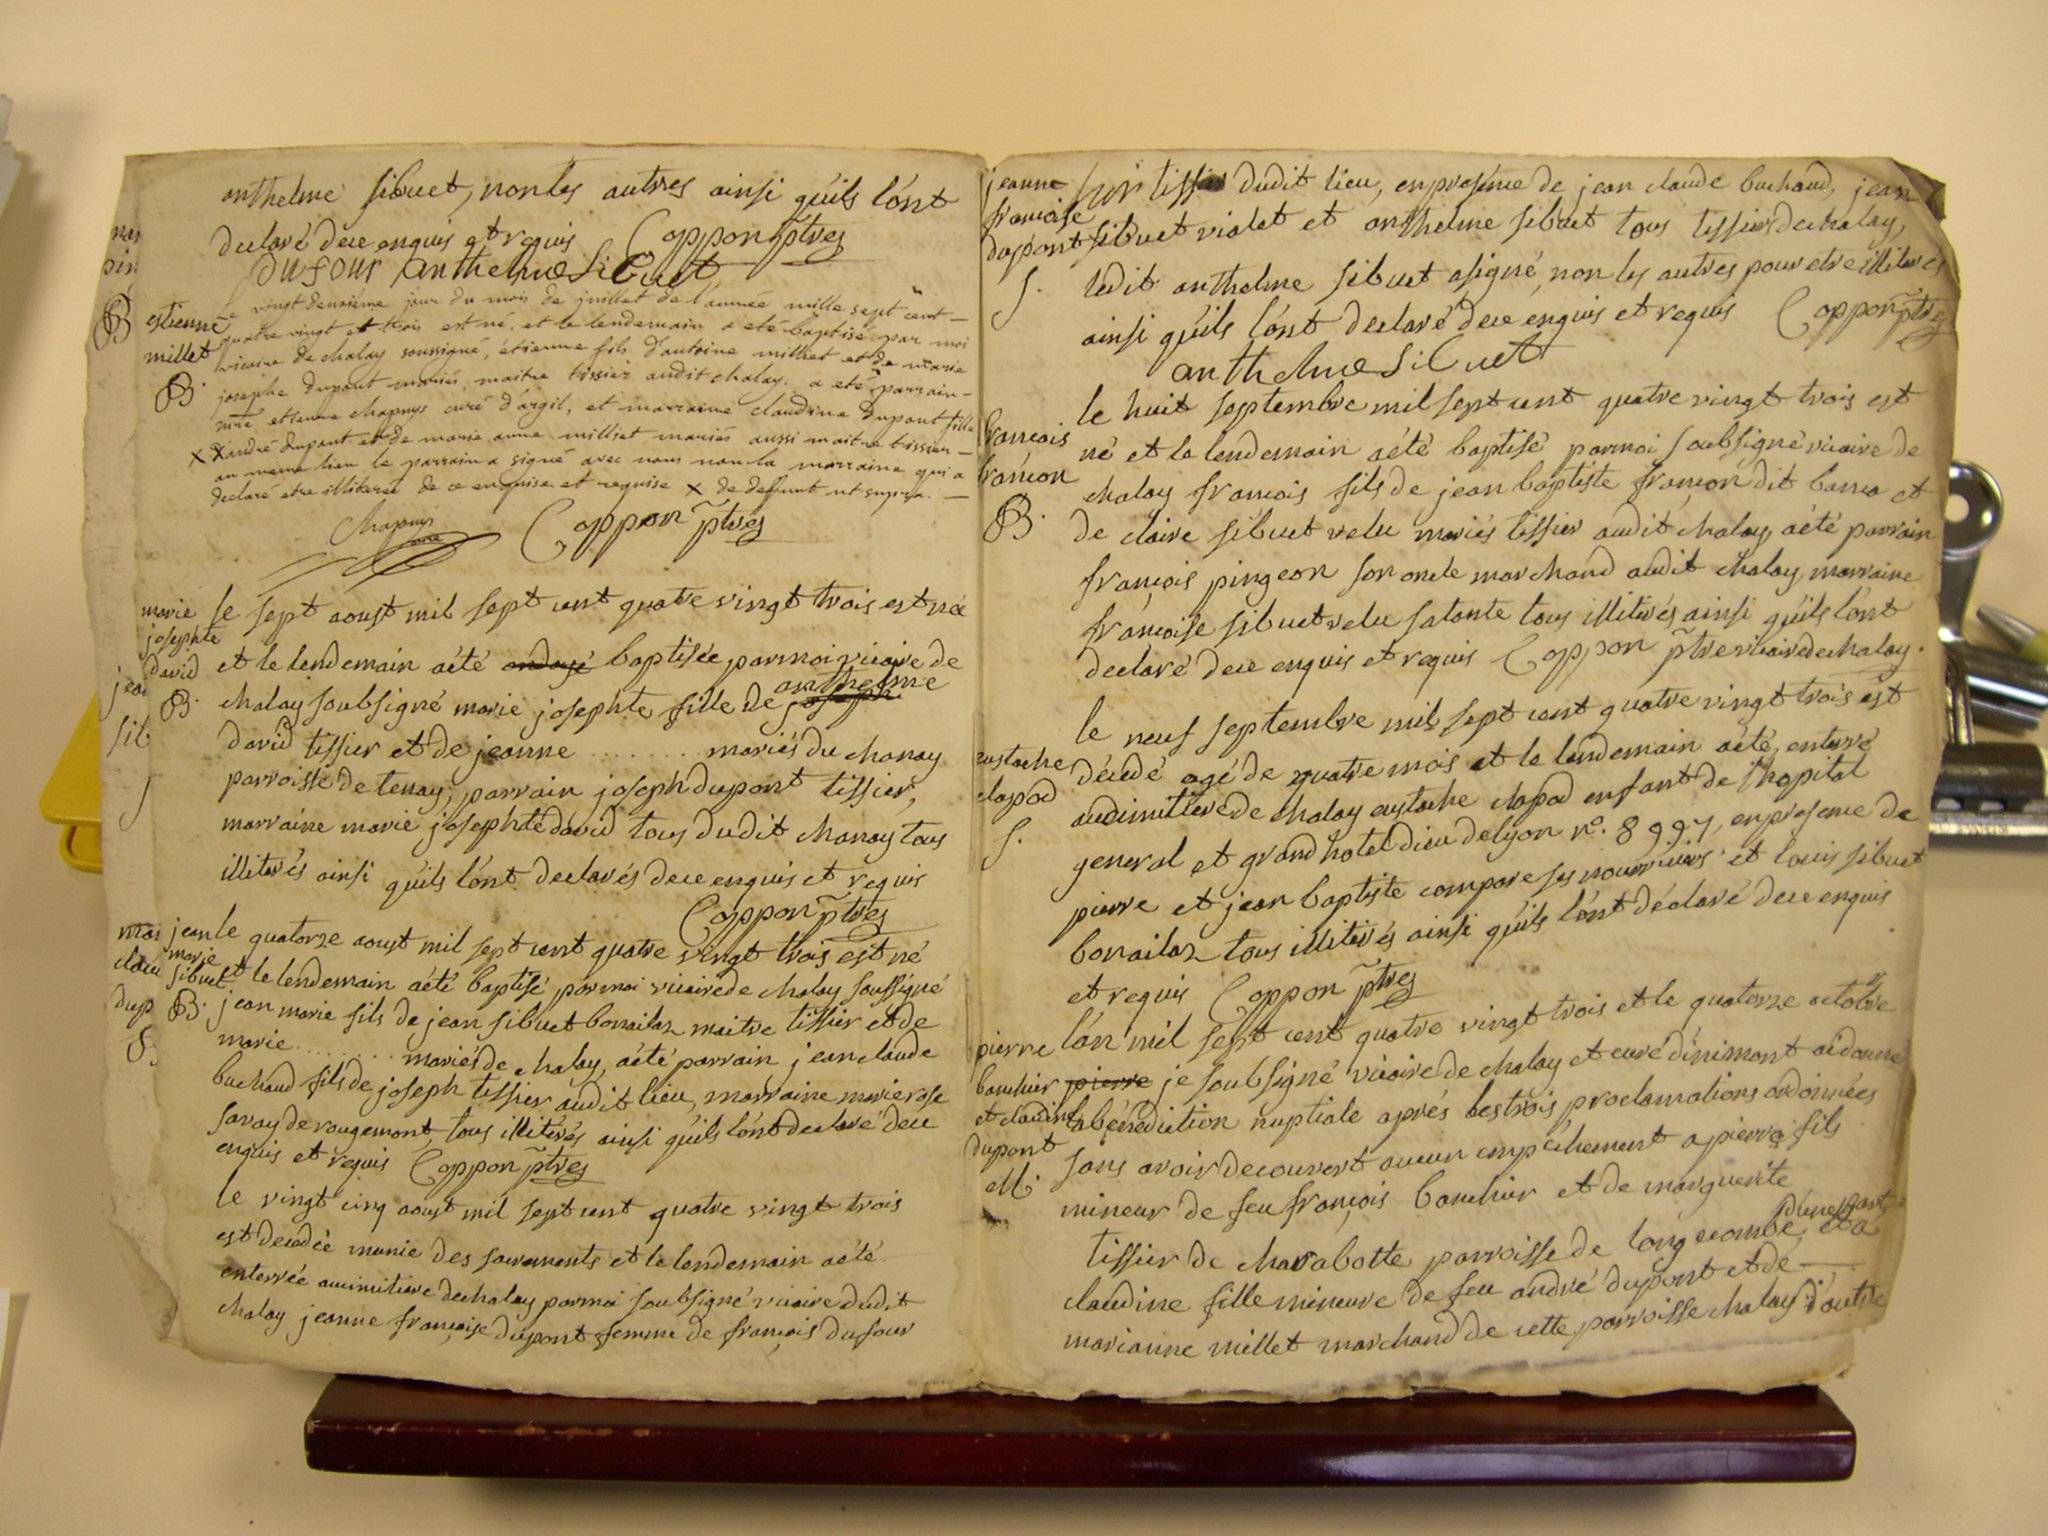 anthelme sibuet, non les autres ainsi qu'ils l'ont
declaré de ce enquis et requis Coppon ptre
dufour anthelme Sibuet
Le vingt deuxieme jour du mois de juillet de l'année mille sept cent
estienne millet
B.
quatre vingt et trois est né, et le lendemain a eté baptisé par moi
vicaire de chalay soussigné, étienne fils d'antoine milliet et de marie
josephe dupont mariés, maitre tissier audit chalay. a eté parrain
mre etienne chapuys curé d'argil, et marraine claudine dupont fille
x d'andré dupont et de marie anne milliet mariés aussi maitre tissier
au meme lieu le parrain a signé avec nous non la marraine qui a
declaré etre illiteree de ce enquise et requise x de deffunt ut supra.
Chapuys curé Coppon ptre
marie josephte david
B.
le sept aoust mil sept cent quatre vingt trois est née
et le lendemain a été ondoyé baptisée par moi vicaire de
chalay soubsigné marie josephte fille de joseph anthelme
david tissier et de jeanne ........ mariés du chanay
parroisse de tenay, parrain joseph dupont tissier,
marraine marie josephte david tous dudit chanay tous
illiterés ainsi qu'ils l'ont declarés de ce enquis et requis
Coppon ptre
jean marie sibuet
B.
le quatorze aoust mil sept cent quatre vingt trois est né
et le lendemain a été baptisé par moi vicaire de chalay soussigné
jean marie fils de jean sibuet bonailaz maitre tissier et de
marie ........ mariés de chalay, a été parrain jean claude
buchaud fils de joseph tissier audit lieu, marraine marie rose
savay de rougemont, tous illiterés ainsi qu'ils l'ont declaré de ce
enquis et requis Coppon ptre
le vingt cinq aoust mil sept cent quatre vingt trois
est decedée munie des sacrements et le lendemain a été
enterrée au cimitiere de chalay par moi soubsigné vicaire dudit
chalay jeanne françoise dupont femme de françois dufour
jeanne francoise dupont
S.
tissier dudit lieu, en presence de jean claude buchaud, jean
sibuet violet et anthelme sibuet tous tissiers de chalay,
ledit anthelme sibuet a signé, non les autres pour etre illiterés
ainsi qu'ils l'ont declaré de ce enquis et requis Coppon ptre
anthelme Sibuet
francois françon
B.
le huit septembre mil sept cent quatre vingt trois est
né et le lendemain a été baptisé par moi soubsigné vicaire de
chalay francois fils de jean baptiste françon dit barra et
de claire sibuet velu mariés tissier audit chalay, a été parrain
françois pingeon son oncle marchand audit chalay, marraine
françoise sibuet velu sa tante tous illiterés ainsi qu'ils l'ont
declaré de ce enquis et requis Coppon ptre vicaire de chalay.
eustache clapod
S.
le neuf septembre mil sept cent quatre vingt trois est
décedé agé de quatre mois et le lendemain a été enterré
au cimitiere de chalay eustache clapod enfant de l'hopital
general et grand hotel dieu de lyon n°. 8997, en presence de
pierre et jean baptiste compare ses nourriciers et louis sibuet
bonailaz tous illiterés ainsi qu'ils l'ont déclaré de ce enquis
et requis Coppon ptre
pierre bouchier et claudine dupont
M.
l'an mil sept cent quatre vingt trois et le quatorze octobre
pierre je soubsigné vicaire de chalay et curé d'inimont ai donné
la bénédiction nuptiale aprés les trois proclamations ordonnées
sans avoir decouvert aucun empechement a pierre fils
mineur de feu françois bouchier et de marguerite
tissier de charabotte parroisse de longecombe, d'une part et a
claudine fille mineure de feu andré dupont et de
marianne millet marchand de cette parroisse chalay d'autre